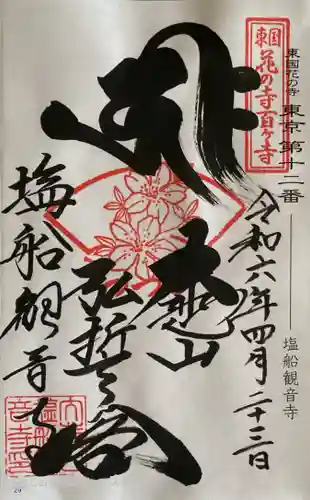 東国花の寺 東京 第十二番
塩船観音寺
東国
花の寺百ヶ寺
令和六年四月二十三日
大悲山
弘誓閣
塩船観音寺